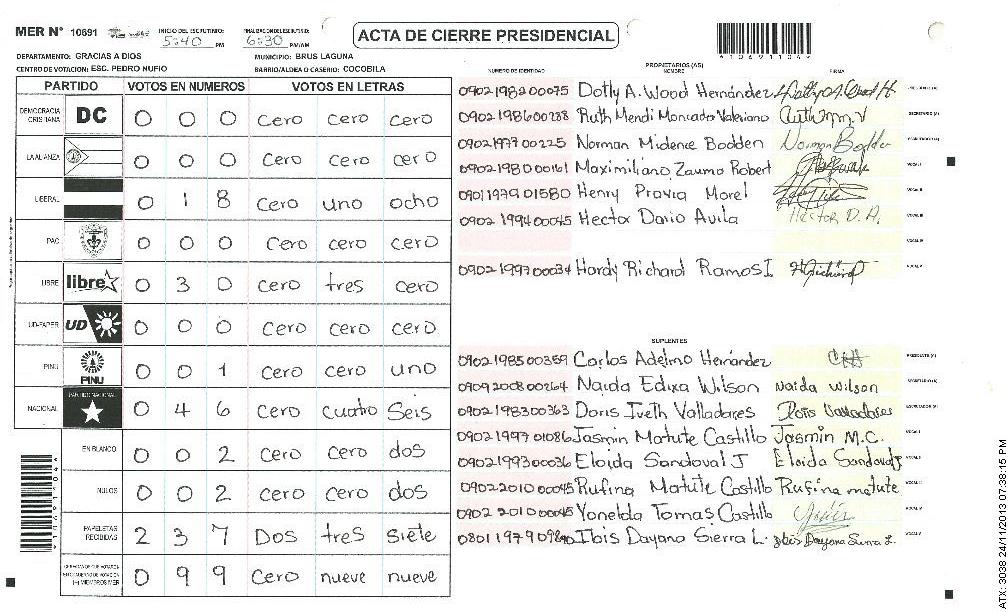 MER Nº 10691
INICIO DEL ESCRUTINIO: 5:40 PM
FINALIZACION DEL ESCRUTINIO: 6:30 PM/AM
ACTA DE CIERRE PRESIDENCIAL
DEPARTAMENTO: GRACIAS A DIOS
MUNICIPIO: BRUS LAGUNA
CENTRO DE VOTACION: ESC. PEDRO NUFIO
BARRIO/ALDEA O CASERIO: COCOBILA
PARTIDO VOTOS EN NUMEROS VOTOS EN LETRAS
DEMOCRACIA CRISTIANA DC 0 0 0 cero cero cero
LA ALIANZA 0 0 0 cero cero cero
LIBERAL 0 1 8 cero uno ocho
PAC 0 0 0 cero cero cero
LIBRE libre 0 3 0 cero tres cero
UD-FAPER UD 0 0 0 cero cero cero
PINU PINU 0 0 1 cero cero uno
NACIONAL PARTIDO NACIONAL 0 4 6 cero cuatro Seis
EN BLANCO 0 0 2 cero cero dos
NULOS 0 0 2 cero cero dos
PAPELETAS RECIBIDAS 2 3 7 Dos tres siete
(+) MIEMBROS MER 0 9 9 Cero nueve nueve
*10691104*
PROPIETARIOS (AS)
NUMERO DE IDENTIDAD NOMBRE FIRMA
0902198200075 Dotly A. Wood Hernández PRESIDENTE (A)
0902198600288 Ruth Mendi Moncada Valeriano SECRETARIO (A)
0902197700225 Norman Midence Bodden Norman Bodden ESCRUTADOR (A)
0902198000161 Maximiliano Zauma Robert VOCAL I
0901197901580 Henry Pravia Morel VOCAL II
0902199400045 Hector Dario Avila Hector D. A. VOCAL III
VOCAL IV
0902199700034 Hardy Richard Ramos I. VOCAL V
SUPLENTES
0902198500359 Carlos Adelmo Hernández PRESIDENTE (A)
0909200800264 Naida Edixa Wilson Naida Wilson SECRETARIO (A)
0902198300363 Doris Iveth Valladares Doris Valladares ESCRUTADOR (A)
0902199701086 Jasmin Matute Castillo Jasmin M.C. VOCAL I
0902199300036 Eloida Sandoval J Eloida Sandoval J VOCAL II
0902201000045 Rufina Matute Castillo Rufina matute VOCAL III
0902201000045 Yonelda Tomas Castillo VOCAL IV
Ibis Dayana Sierra L. Ibis Dayana Sierra L. VOCAL V
ATX: 3038 24/11/2013 07:38:15 PM